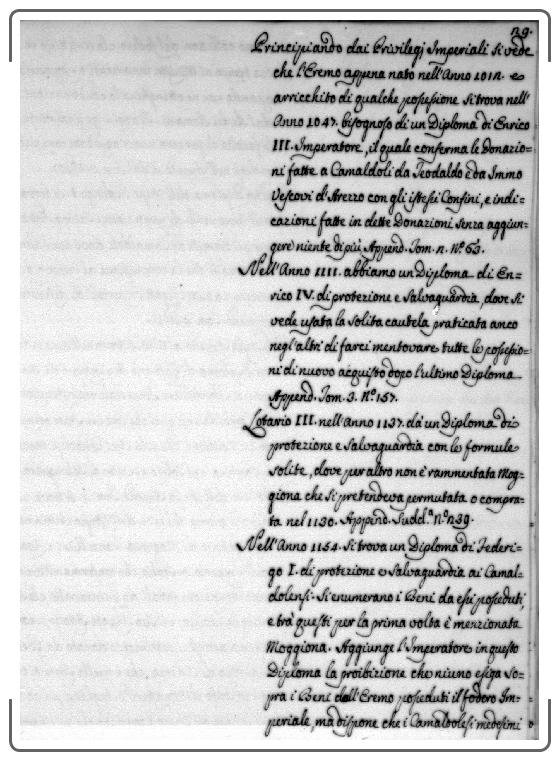 29.
Principiando dai Privilegj Imperiali si vede
che l'Eremo appena nato nell'Anno 1012. e
arricchito di qualche possessione si trova nell'
Anno 1047. bisognoso di un Diploma di Enrico
III. Imperatore, il quale conferma le Donazio=
ni fatte a Camaldoli da Teodaldo e da Immo
Vescovi d'Arezzo con gli istessi Confini, e indi=
cazioni fatte in dette Donazioni senza aggiun=
gere niente di più Append. Tom. n. N.º 63.
Nell'Anno 1111. abbiamo un Diploma di En=
rico IV. di protezione e Salvaguardia, dove si
vede usata la solita cautela praticata anco
negl'altri di farci mentovare tutte le possessio=
ni di nuovo acquisto dopo l'ultimo Diploma
Append. Tom. 3. N.º 157.
Lotario III. nell'Anno 1137. dà un Diploma di
protezione e Salvaguardia con le formule
solite, dove per altro non è rammentata Mog=
giona che si pretendeva permutata o compra=
ta nel 1130. Append. Sudd.ª N.º 239.
Nell'Anno 1154. si trova un Diploma di Federi=
go I. di protezione e Salvaguardia ai Camal=
dolensi. Si enumerano i Beni da essi posseduti,
e trà questi per la prima volta è menzionata
Moggiona. Aggiunge l'Imperatore in questo
Diploma la proibizione che niuno esiga so=
pra i Beni dell'Eremo posseduti il fodero Im=
periale, ma dispone che i Camaldolesi medesimi